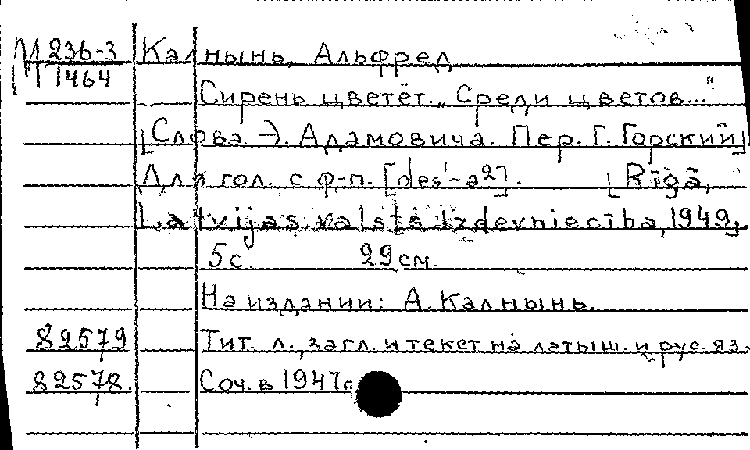 М 236-3 Калнынь, Альфред
1464
Сирень цветёт. „Среди цветов..."
[Слова Э. Адамовича. Пер. Г. Горский]
Для гол. с ф-п. [des'-a²]. [Rīgā,
Latvijas valsts izdevniecība, 1949]
5 с. 29 см.
На издании: А. Калнынь.
82579 Тит. л., загл. и текст на латыш. и рус. яз.
82578. Соч. в 1947 г.